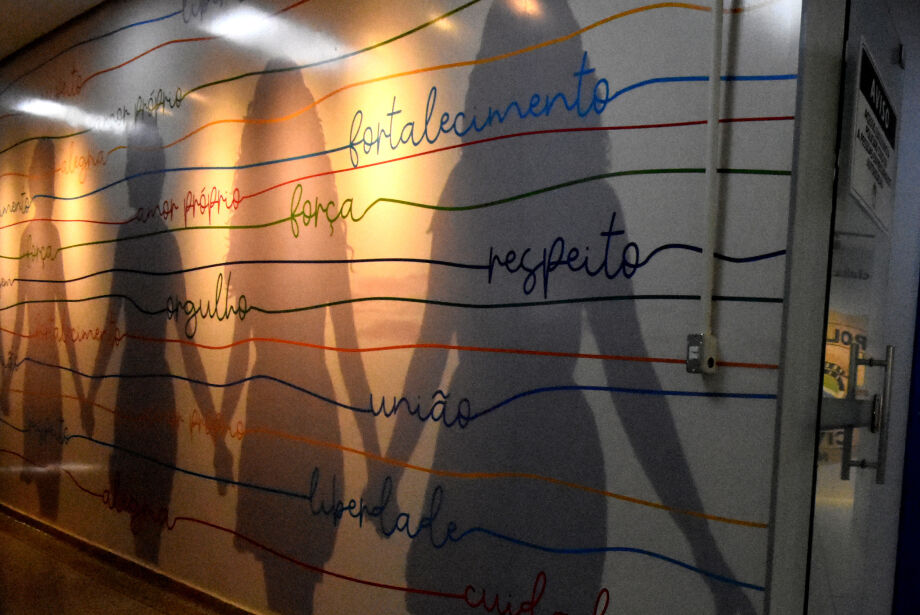 liber
amor próprio
fortalecimento
alegria
amor próprio
força
força
respeito
orgulho
fortalecimento
união
amor próprio
respeito
liberdade
alegria
cuidad
AVISO
POL